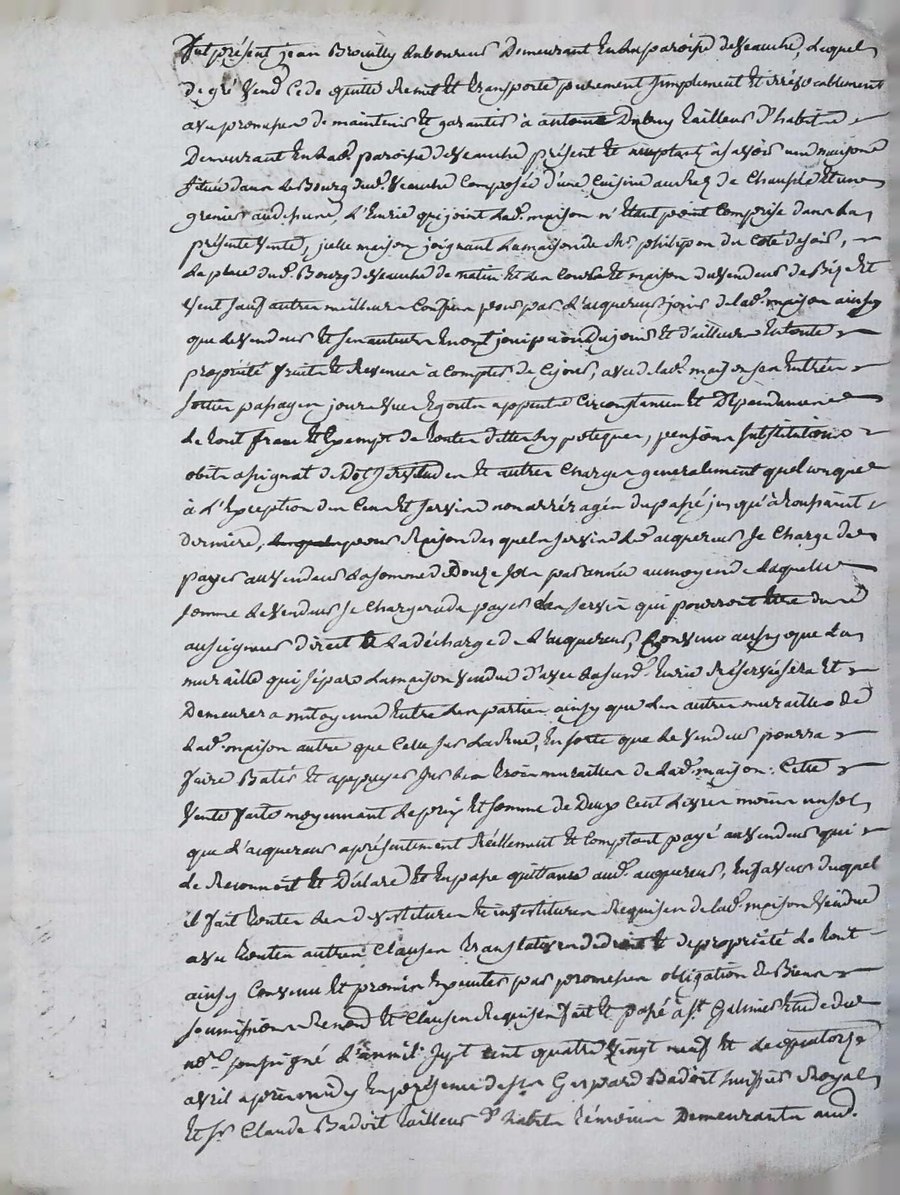 fut présent jean Brouilly Laboureur Demeurant En La paroisse de Veauche, Lequel
de gré Vend Cede quitte Remet Et transporte purement simplement Et irrévocablement
avec promesse de maintenir Et garantir à antoine Dubuy tailleur d'habits
Demeurant En lad. paroisse de Veauche présent Et acceptant à savoir une maison
située dans Le Bourg dud. Veauche Composée d'une Cuisine au Rez de Chaussée Et un
grenier au dessus, L'Ecurie qui joint Lad. maison n'étant point Comprise dans La
présente Vente, icelle maison joignant La maison de philipon du Coté de soir,
La place dud. Bourg de Veauche de matin Et Les Cour Et maison du Vendeur de Bize Et
Vent sauf autres meilleurs Confins pour par L'acquereur jouir de lad. maison ainsy
que Le Vendeur Et ses auteurs En ont joui pu ou Du jouir Et d'ailleurs En toute
propriété fruits Et Revenus à Compter de Ce jour, avec de lad. maison ses Entrées
sorties passages jours Vues Egouts appentis Circonstances Et Dépendances
Le tout franc Et Exempt de toutes dettes hypoteques, pensions substitutions
obits assignat de Dot servitudes Et autres Charges generalement quelconques
à L'Exception des Cens Et servis non arréragés du passé jusqu'à toussaint
Derniere, pour Raison des quels servis Led. acquereur se Charge de
payer au Vendeur La somme de Douze sols par année au moyen de Laquelle
somme Le Vendeur se Chargera de payer Les servis qui pourront être dus
au seigneur direct à La décharge de L'acquereur, Convenu aussy que La
muraille qui sépare La maison Vendue d'avec La susd. Ecurie Réservée sera Et
Demeurera mitoyenne Entre Les parties ainsy que Les autres murailles de
Lad. maison autre que Celle sur La Rue, En sorte que Le Vendeur pourra
faire Batir Et appuyer sur Les trois murailles de Lad. maison: Cette
Vente faite moyennant Le prix Et somme de Deux Cent Livres moins un sol
que L'acquereur a présentement Réellement Et Comptant payé au Vendeur qui
Le Reconnoit Et Déclare Et En passe quittance aud. acquereur, En faveur duquel
il fait toutes Les devestitures Et investitures Requises de Lad. maison Vendue
avec toutes autres Clauses translatives de droit Et de propriété Le tout
ainsy Convenu Et promis Executer par promesses obligation de Biens
soumissions Renon. Et Clauses Requises fait Et passé à St. Galmier Etude du
no.re soussigné L'an mil sept cent quatre Vingt neuf Et Le quatorze
avril après midy En présence de sr. Gaspard Badoit huissier Royal
Et sr. Claude Badoit tailleur d'habits témoins Demeurants aud.